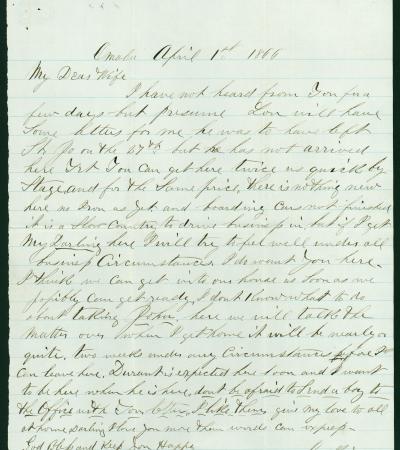 Omaha April 1st 1866
My Dear Wife
I have not heard from You for a
few days but presume Lon will have
some letters for me, he was to have left
St Jo on the 27th but he has not arrived
here Yet You can get here twice as quick by
Stage, and for the same price, there is nothing new
here no Iron as Yet and boarding Cars not finished
it is a Slow Country to drive business in, but if I get
My Darling here I will try to feel well under all
business Circumstances, I do want You here.
I think we can get into our house as soon as we
possibly can get ready, I dont Know what to do
about taking John, here we will talk the
matter over when I get home it will be nearly or
quite, two weeks under any Circumstances before I
can leave here, Durant is expected here soon and I want
to be here when he is here, dont be afraid to send a boy to
the Office with Your letters, I like them, give my love to all
at home Darling I love You more than words can express-
God Bless and Keep You Happy